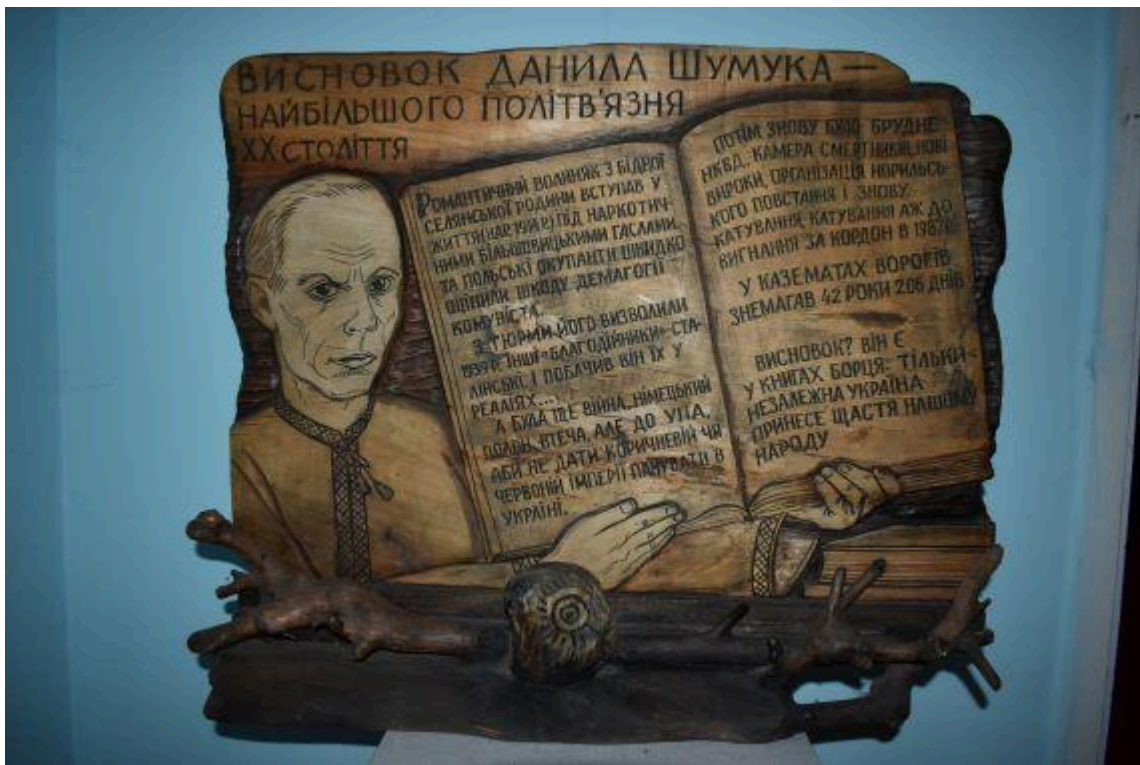 ВИСНОВОК ДАНИЛА ШУМУКА —
НАЙБІЛЬШОГО ПОЛІТВ'ЯЗНЯ
ХХ СТОЛІТТЯ
РОМАНТИЧНИЙ ВОЛИНЯК З БІДНОЇ
СЕЛЯНСЬКОЇ РОДИНИ ВСТУПАВ У
ЖИТТЯ (НАР. 1914 р.) ПІД НАРКОТИЧ-
НИМИ БІЛЬШОВИЦЬКИМИ ГАСЛАМИ.
ТА ПОЛЬСЬКІ ОКУПАНТИ ШВИДКО
ОЦІНИЛИ ШКОДУ ДЕМАГОГІЇ
КОМУНІСТА.
З ТЮРМИ ЙОГО ВИЗВОЛИЛИ
1939 р. ІНШІ «БЛАГОДІЙНИКИ» СТА-
ЛІНСЬКІ. І ПОБАЧИВ ВІН ЇХ У
РЕАЛІЯХ...
А БУЛА ЩЕ ВІЙНА, НІМЕЦЬКИЙ
ПОЛОН, ВТЕЧА, АЛЕ ДО УПА,
АБИ НЕ ДАТИ КОРИЧНЕВІЙ ЧИ
ЧЕРВОНІЙ ІМПЕРІЇ ПАНУВАТИ В
УКРАЇНІ.
ПОТІМ ЗНОВУ БУЛО БРУДНЕ
НКВД, КАМЕРА СМЕРТНИКІВ, НОВІ
ВИРОКИ, ОРГАНІЗАЦІЯ НОРИЛЬСЬ-
КОГО ПОВСТАННЯ І ЗНОВУ
КАТУВАННЯ, КАТУВАННЯ АЖ ДО
ВИГНАННЯ ЗА КОРДОН В 1987 р.
У КАЗЕМАТАХ ВОРОГІВ
ЗНЕМАГАВ 42 РОКИ 206 ДНІВ
ВИСНОВОК? ВІН Є
У КНИГАХ БОРЦЯ: ТІЛЬКИ
НЕЗАЛЕЖНА УКРАЇНА
ПРИНЕСЕ ЩАСТЯ НАШОМУ
НАРОДУ